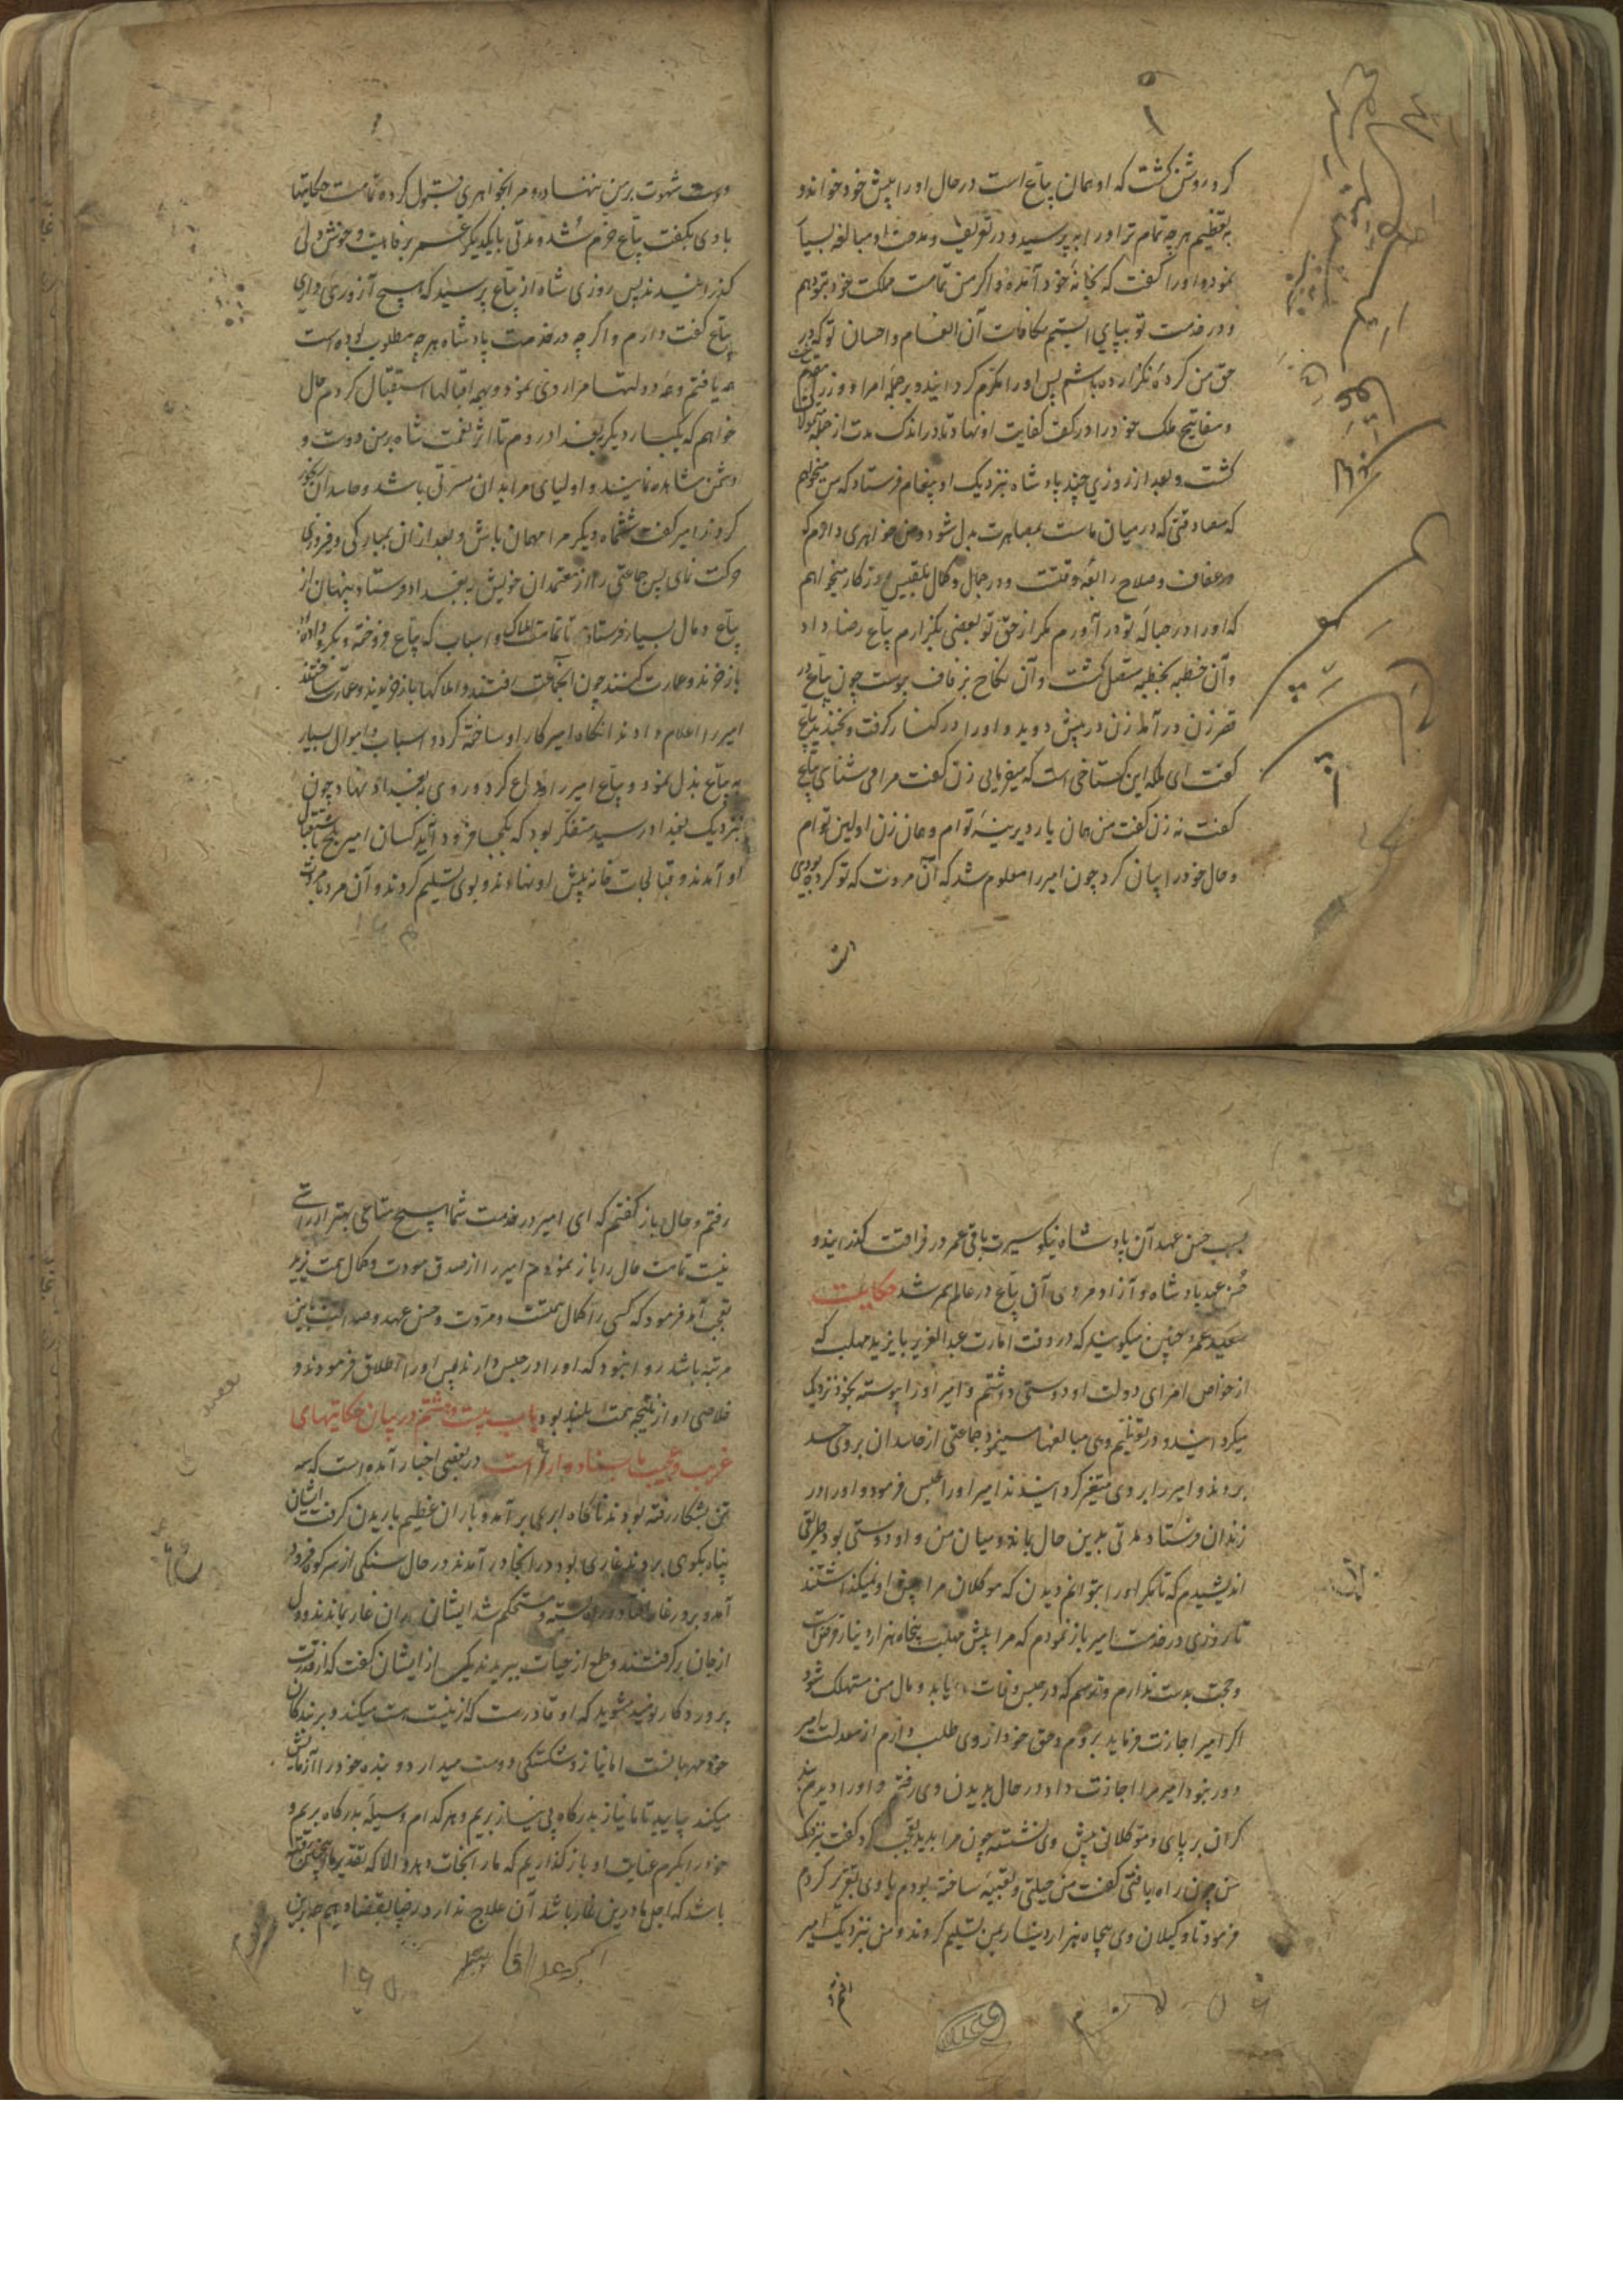 کرد و روشن کشت که او همان بیاع است در حال او را پیش خود خواند و
به تعظیم هر چه تمام تر او را بپرسید و در تعریف و مدحت او مبالغه بسیار
نمود و او را کفت که بخانهٔ خود آمدهٔ و اکر من تمامت ملکت خود بتو دهم
و در خدمت تو بپای ایستم مکافات آن انعام و احسان تو که در
حق من کردهٔ نکزارده باشم پس او را مکرم کردانید و بر جمله امرا و وزرا
و مفاتیح ملک خود را در کف کفایت او نهاد تا در اندک مدت از جمله
کشت و بعد از روزی چند پادشاه بنزدیک او پیغام فرستاد که من میخواهم
که مصادقتی که در میان ماست بمصاهرت بدل شود و من خواهری دارم که
در عفاف و صلاح رابعهٔ وقتست و در جمال و کمال بلقیس روزکار میخواهم
که او را در حبالهٔ تو در آورم مکر از حق تو بعضی بکزارم بیاع رضا داد
و آن خطبه بخطبه متصل کشت و آن نکاح بزفاف پیوست چون بیاع در
قصر زن در آمد زن در پیش دوید و او را در کنار کرفت و بخندید بیاع
کفت ای ملکه این کستاخی است که میفرمایی زن کفت مرا می شناسی بیاع
کفت نه زن کفت من همان یار دیرینهٔ توام و همان زن اولین توام
و حال خود را بیان کرد چون امیر را معلوم شد که آن مروت که تو کرده بودی
دست شهوت بر من ننهاد و مرا بخواهری قبول کرد و تمامت حکایتها
با وی بکفت بیاع خرم شد و مدتی با یکدیکر عمر برفاهیت و خوش دلی
کذرانیدند پس روزی شاه از بیاع پرسید که هیچ آرزوی داری
بیاع کفت دارم و اکر چه در خدمت پادشاه هر چه مطلوب بوده است
همه یافتم و همه دولتها مرا روی نمود و بهمه اقبالها استقبال کردم حال
خواهم که یکبار دیکر ببغداد روم تا اثر نعمت شاه بر من دوست و
دشمن مشاهده نمایند و اولیای مرا بدان مسرتی باشد و حاسدان
کردند امیر کفت ششماه دیکر مرا مهمان باش و بعد از ان بمبارکی و فیروزی
حرکت نمای پس جماعتی را از معتمدان خویش به بغداد فرستاد پنهان از
بیاع و مال بسیار فرستاد تا تمامت املاک و اسباب که بیاع فروخته و بکرو داده
باز خرند و عمارت کنند چون آنجماعت رفتند و املاکها باز خریدند و عمارت ساختند
امیر را اعلام دادند آنکاه امیر کار او ساخته کرد و اسباب و اموال بسیار
به بیاع بذل نمود و بیاع امیر را وداع کرد و روی ببغداد نهاد چون
بنزدیک بغداد رسید متفکر بود که بکجا فرود آید کسان امیر بلخ باستقبال
او آمدند و قبالجات خانه پیش او نهادند و بوی تسلیم کردند و آن مرد
بسبب حسن عهد آن پادشاه نیکو سیرت باقی عمر در فراقت کذرانید و
حسن عهد پادشاه و آزاد مردی آن بیاع در عالم سمر شد حکایت
سعید عمرو چنین میکویند که در وقت امارت عبدالعزیز با یزید مهلب که
از خواص امرای دولت او دوستی داشتم و امیر او را پیوسته بخود نزدیک
میکردانید و در تعظیم وی مبالغها مینمود جماعتی از حاسدان بر وی حسد
بردند و امیر را بر وی متغیر کردانیدند امیر او را حبس فرمود و او را در
زندان فرستاد مدتی بدین حال بماند و میان من و او دوستی بود طریقی
اندیشیدم که تا مکر او را بتوانم دیدن که موکلان مرا پیش او نمیکذاشتند
تا روزی در خدمت امیر باز نمودم که مرا پیش مهلب پنجاه هزار دینار قرض است
و حجت بدست ندارم و ترسم که در حبس وفات یابد و مال من مستهلک شود
اکر امیر اجازت فرماید بروم و حق خود از وی طلب دارم از معدلت امیر
دور نبود امیر مرا اجازت داد در حال بدیدن وی رفتم و او را دیدم بند
کران بر پای و موکلانی پیش وی نشسته چون مرا بدید تعجب کرد کفت بنزدیک
من چون راه یافتی کفت من حیلتی و تعبیهٔ ساخته بودم با وی تقریر کردم
فرمود تا وکیلان وی پنجاه هزار دینار بمن تسلیم کردند و من نزدیک امیر
رفتم و حال باز کفتم که ای امیر در خدمت شما هیچ متاعی بهتر از راستی
نیست تمامت حال را باز نمودم امیر را از صدق مودت و کمال همت یزید
تعجب آمد فرمود که کسی را کمال همت و مروت و حسن عهد و صداقت باین
مرتبه باشد روا نبود که او را در حبس دارند پس او را اطلاق فرمودند و
خلاصی او از نتیجهٔ همت بلند بود باب بیست و هشتم در بیان حکایتهای
غریب و عجیب باسناد وارد است در بعضی اخبار آمده است که سه
تن بشکار رفته بودند ناکاه ابری بر آمد و باران عظیم باریدن کرفت ایشان
پناه بکوهی بردند غاری بود در انجا در آمدند در حال سنکی از سر کوه فرود
آمد و بر در غار افتاد و در بسته و مستحکم شد ایشان در ان غار بماندند و دل
از جان بر کرفتند و طمع از حیات ببریدند یکی از ایشان کفت که از قدرت
پروردکار نومید مشوید که او قادرست که از نیست هست میکند و بر بندکان
خود مهربانست اما نیاز و شکستکی دوست میدارد و بنده خود را آزمایش
میکند بیایید تا ما نیاز بدرکاه بی نیاز بریم و هر کدام وسیلهٔ بدرکاه بریم و
خود را بکرم عنایت او باز کذاریم که ما را نجات دهد و الا که تقدیر ما چنین رفته
باشد که اجل ما درین غار باشد آن علاج ندارد رضا بقضا دهیم